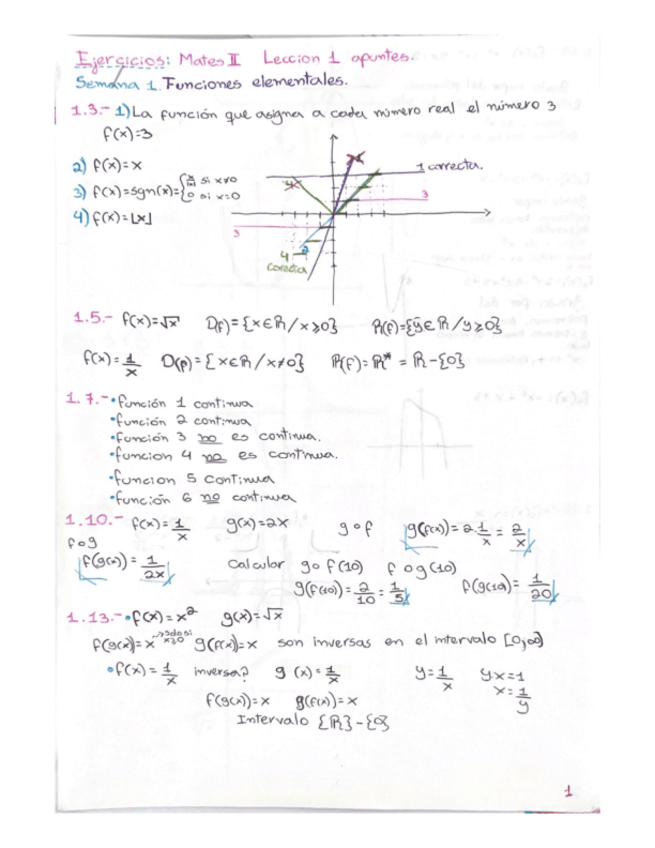 Ejercicios: Mates II Leccion 1 apuntes.
Semana 1. Funciones elementales.
1.3.- 1) La función que asigna a cada número real el número 3
f(x)=3
2) f(x)=x
3) f(x)=sgn(x)={ x/|x| si x≠0
0 si x=0
4) f(x)=⌊x⌋
1 correcta.
3
3
4
2
4
correcta
1.5.- f(x)=√x D(f)={x∈R/x≥0} R(f)={y∈R/y≥0}
f(x)=1/x D(f)={x∈R/x≠0} R(f)=R* = R-{0}
1.7.- • función 1 continua
• función 2 continua
• función 3 no es continua.
• funcion 4 no es continua.
• funcion 5 continua
• función 6 no continua
1.10.- f(x)=1/x g(x)=2x g∘f g(f(x))=2·1/x=2/x
f∘g
f(g(x))=1/2x calcular g∘f(10) f∘g(10)
g(f(10))=2/10=1/5 f(g(10))=1/20
1.13.- • f(x)=x² g(x)=√x
f(g(x))=x → solo si x≥0 g(f(x))=x son inversas en el intervalo [0,∞)
• f(x)=1/x inversa? g(x)=1/x y=1/x yx=1
x=1/y
f(g(x))=x g(f(x))=x
Intervalo {R}-{0}
1